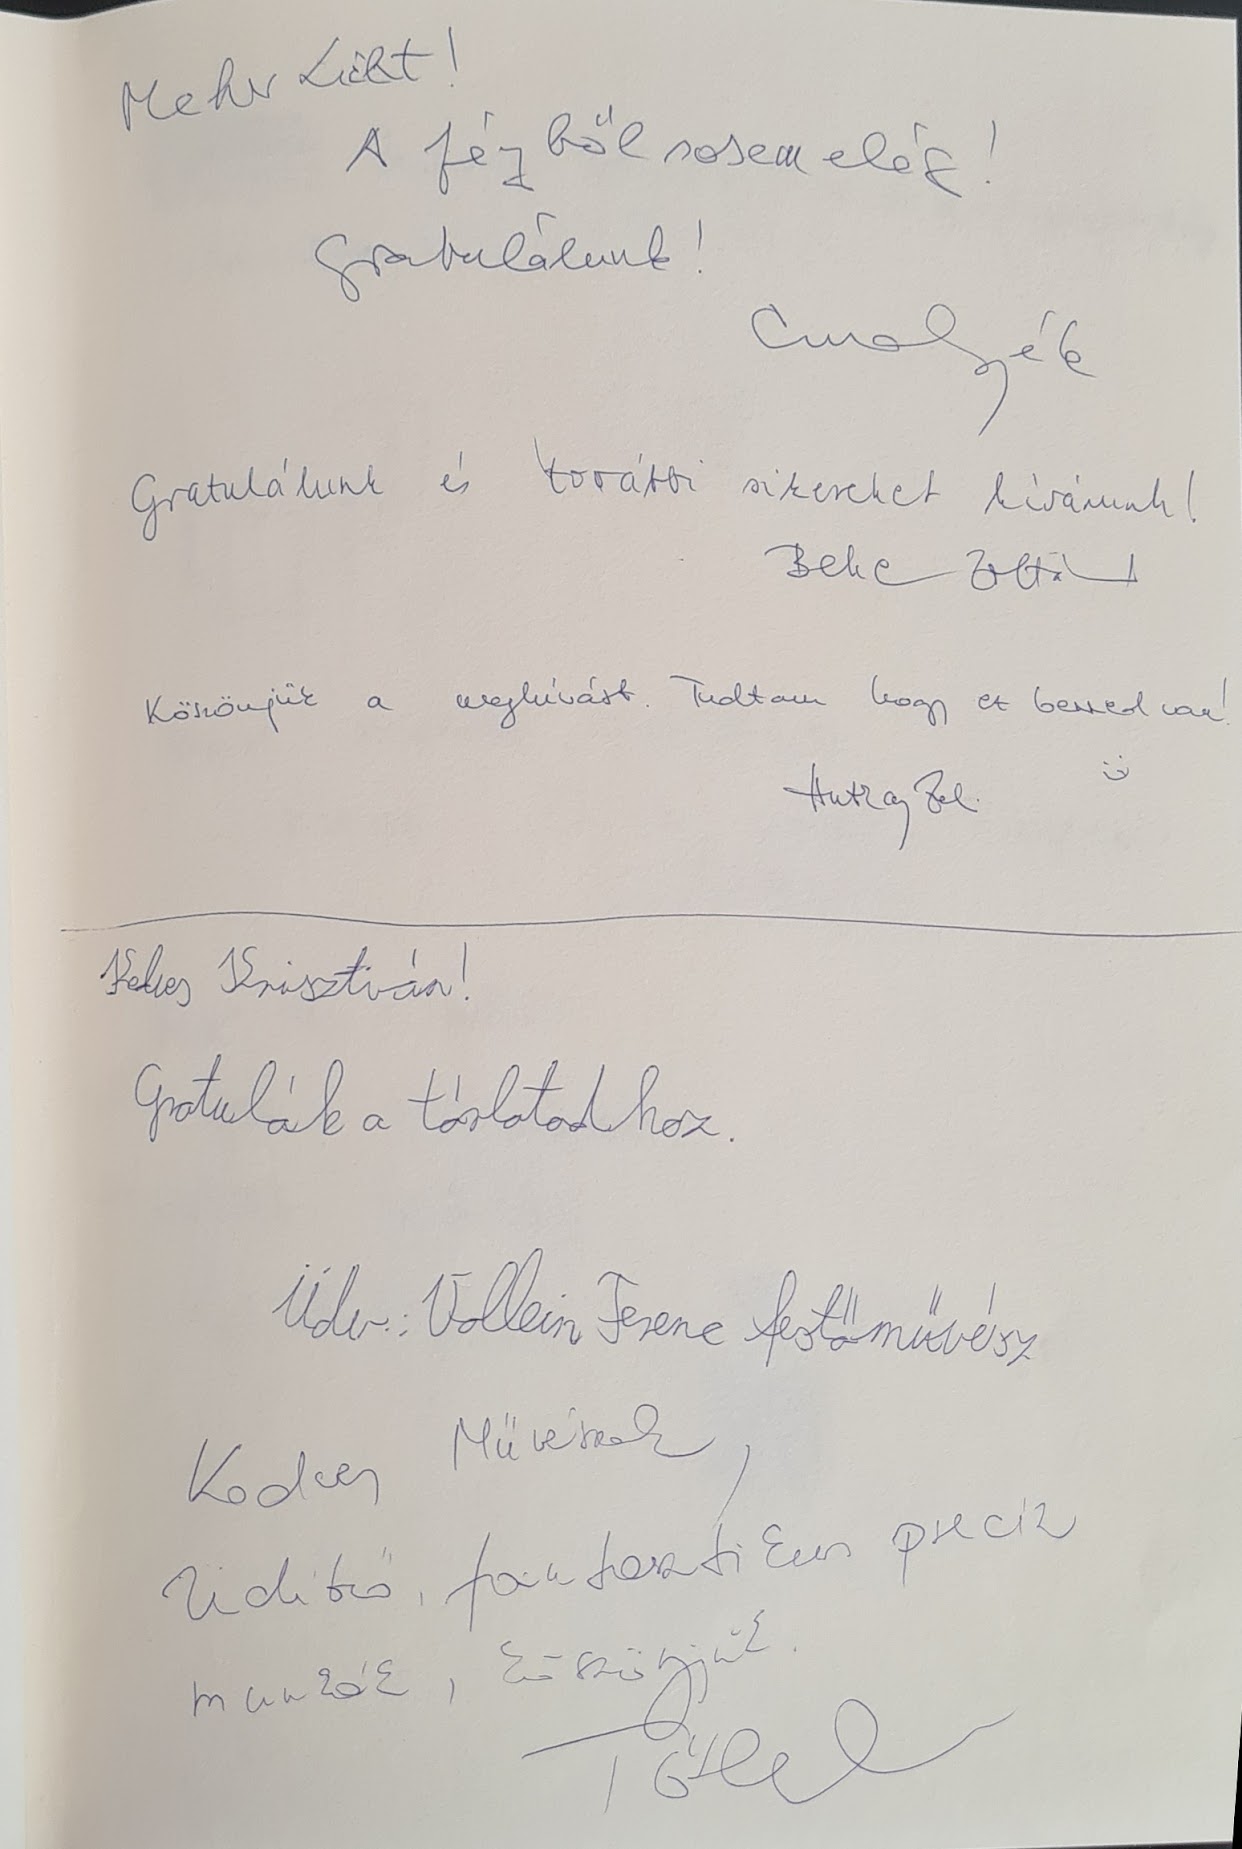 Mehr Licht!
A fényből sosem elég!
Gratulálunk!
Gratulálunk és további sikereket kívánunk!
Beke Zoltán
Köszönjük a meghívást. Tudtam hogy ez benned van!
Kedves Krisztián!
Gratulálok a tárlatodhoz.
Üdv.: Vollein Ferenc festőművész
Kedves Művészek,
Üdítő, fantasztikus precíz
munkák, köszönjük.